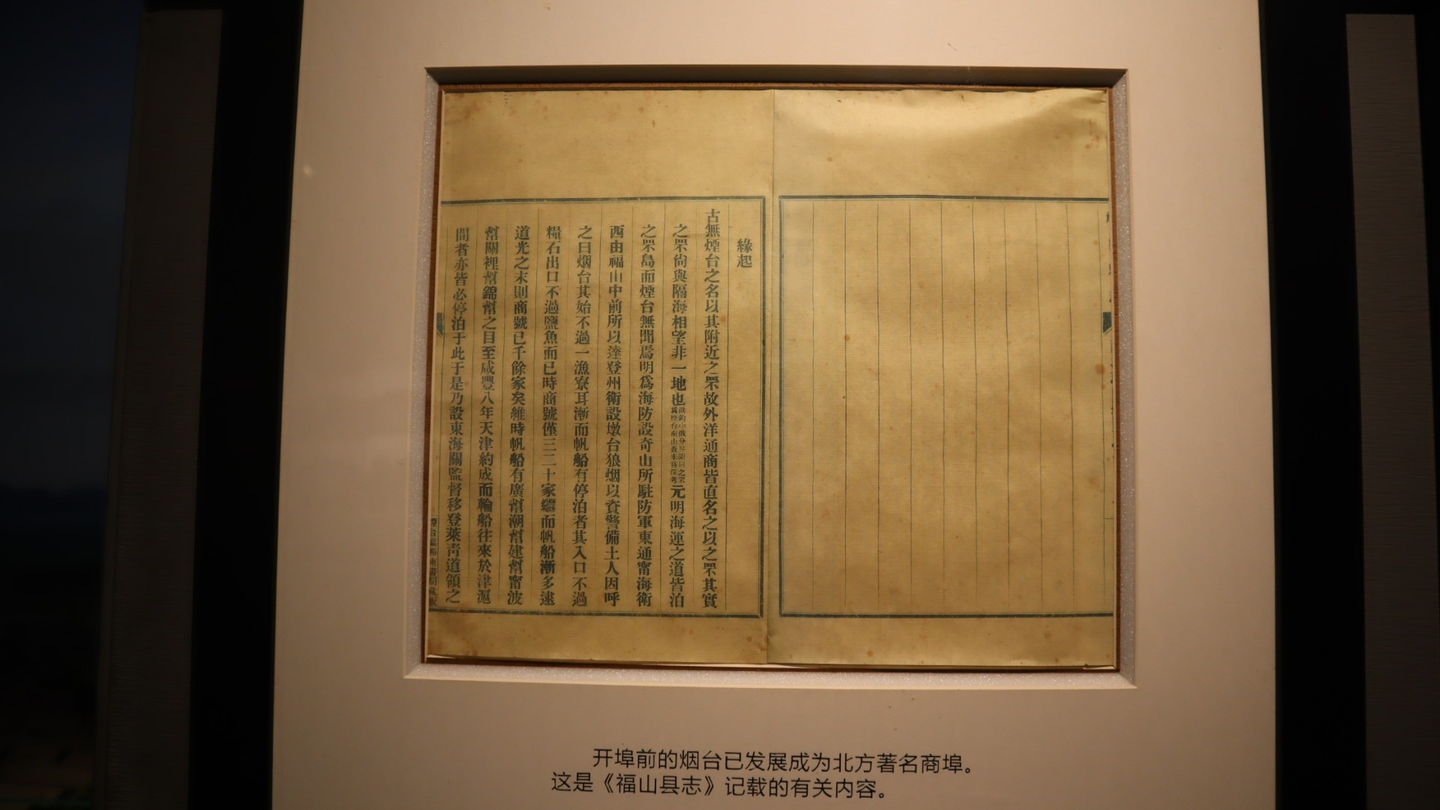 緣起
古無煙台之名以其附近之罘故外洋通商皆直名之以之罘其實
之罘尙與隔海相望非一地也元明海運之道皆泊
之罘島而煙台無聞焉明爲海防設奇山所駐防軍東通甯海衛
西由福山中前所以達登州衛設墩台狼烟以資警備土人因呼
之曰烟台其始不過一漁寮耳漸而帆船有停泊者其入口不過
糧石出口不過鹽魚而已時商號僅三二十家繼而帆船漸多逮
道光之末則商號已千餘家矣維時帆船有廣幫潮幫建幫甯波
幫關裡幫錦幫之目至咸豐八年天津約成而輪船往來於津滬
間者亦皆必停泊于此于是乃設東海關監督移登萊靑道領之
开埠前的烟台已发展成为北方著名商埠。
这是《福山县志》记载的有关内容。